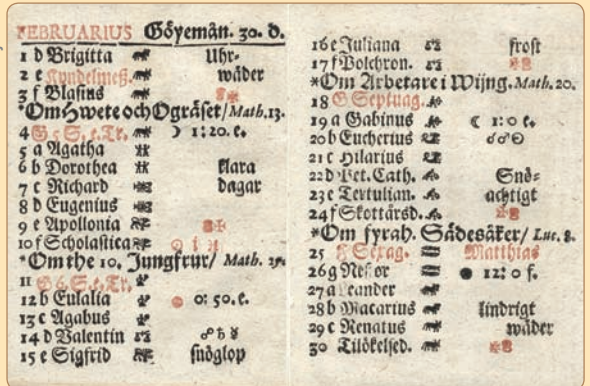 FEBRUARIUS Göyemån. 30. d.
1 d Brigitta Uhr-
2 e Kyndelmeß. wäder
3 f Blasius
*Om Hwete och Ogräset/ Math. 13.
4 G 5. S. e. Tr. ☽ 1: 20. e.
5 a Agatha
6 b Dorothea klara
7 c Richard dagar
8 d Eugenius
9 e Apollonia
10 f Scholastica
*Om the 10. Jungfrur/ Math. 25.
11 G 6. S. e. Tr.
12 b Eulalia 0: 50. e.
13 c Agabus
14 d Valentin ☍ ♄ ☿
15 e Sigfrid snöglop
16 e Juliana frost
17 f Polchron.
*Om Arbetare i Wijng. Math. 20.
18 G Septuag.
19 a Gabinus ☾ 1: 0 e.
20 b Eucherius ☌ ♂ ☉
21 c Hilarius
22 d Pet. Cath. Snö-
23 e Tertulian. achtigt
24 f Skottårsd.
*Om fyrah. Sädesåker/ Luc. 8.
25 F Sexag. Matthias
26 g Nestor ● 12: 0 f.
27 a Leander
28 b Macarius lindrigt
29 c Renatus wäder
30 Tilökelsed.